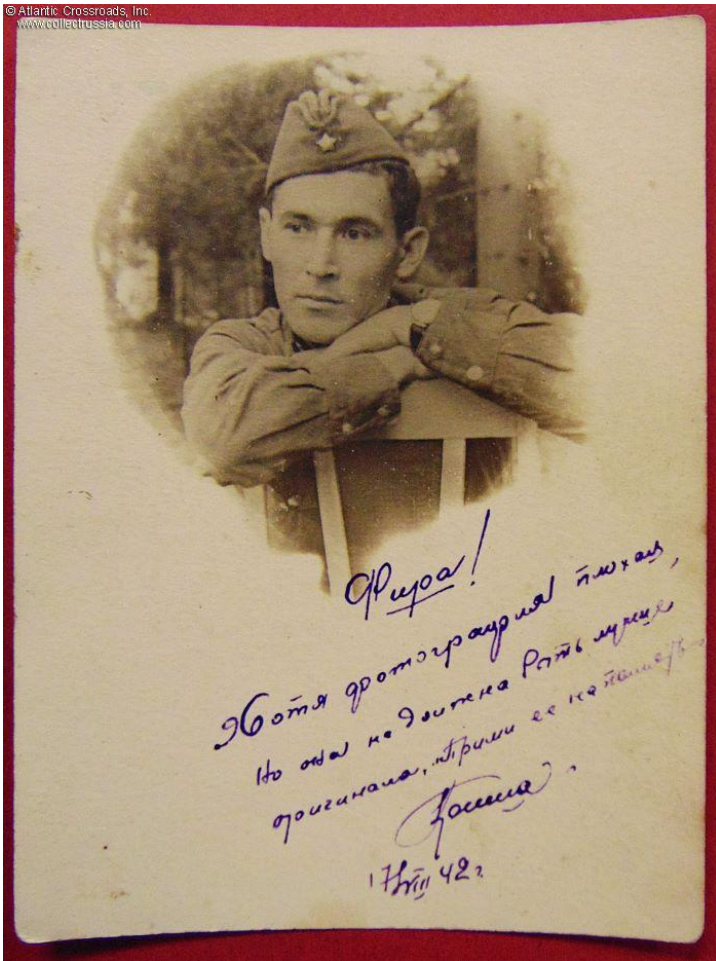 © Atlantic Crossroads, Inc.
www.collectrussia.com
Фира!
Хотя фотография плохая,
Но она не должна быть лучше
оригинала, Прими ее на память.
17/VIII 42 г.